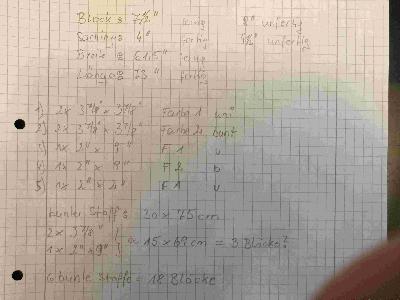 Block: 7 1/2" fertig 8" unfertig
Sashing 4" fertig 4 1/2" unfertig
Breite: 61.5" fertig
Länge: 73" fertig
1) 2x 3 7/8" x 3 7/8" Farbe 1 uni
2) 2x 3 7/8" x 3 7/8" Farbe 2 bunt
3) 1x 2" x 9" F 1 u
4) 1x 2" x 9" F 2 b
5) 1x 2" x 4" F 1 u
bunter Stoff: 20 x 75 cm
2x 3 7/8"
1x 2"x9" 15 x 69 cm = 3 Blöcke?
6 bunte Stoffe = 18 Blöcke